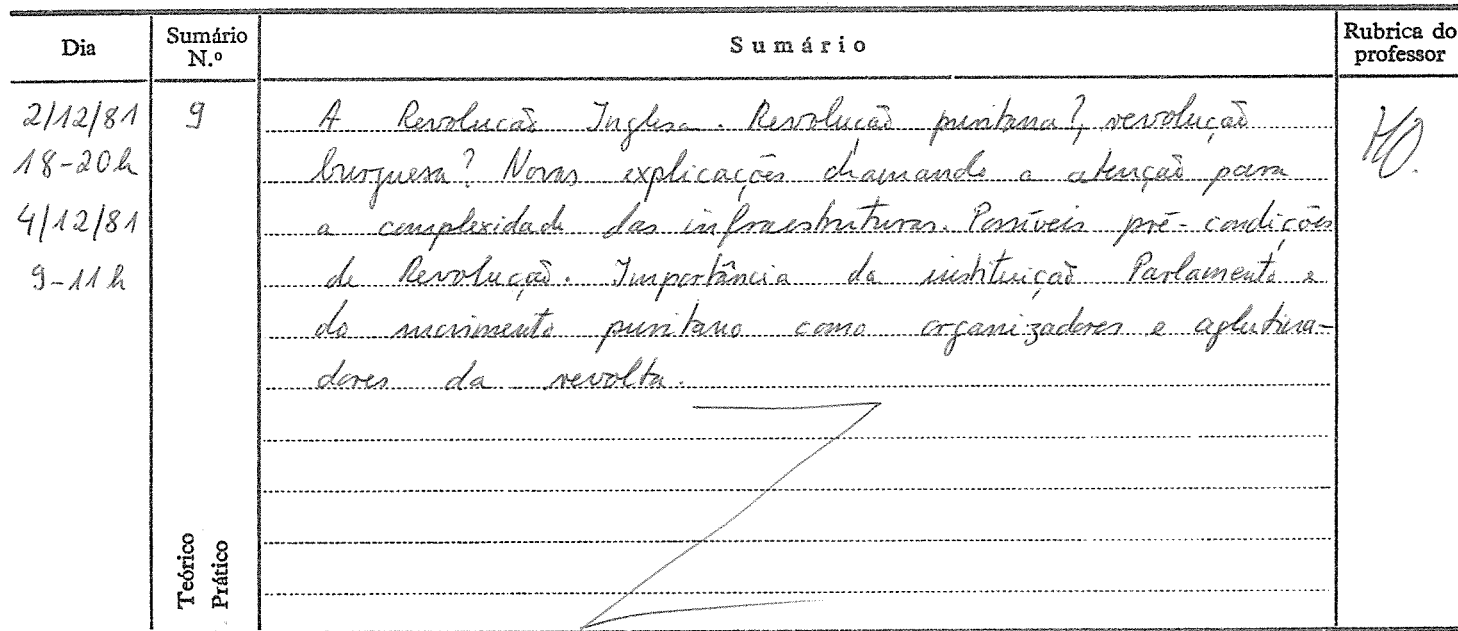 Dia Sumário N.º Sumário Rubrica do professor
2/12/81 9 A Revolução Inglesa. Revolução puritana?, revolução
18-20h burguesa? Novas explicações chamando a atenção para
4/12/81 a complexidade das infraestruturas. Possíveis pré-condições
9-11h de Revolução. Importância da instituição Parlamento e
do movimento puritano como organizadores e aglutina-
dores da revolta.
Teórico
Prático